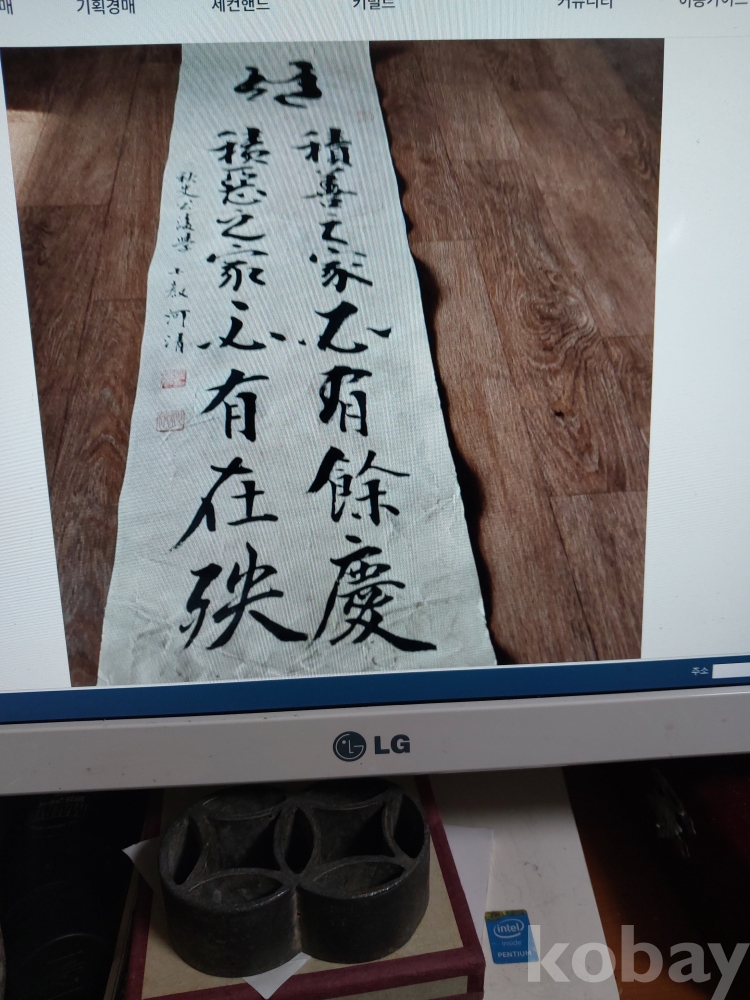 매 기획경매 세컨핸드 커뮤니티 이용가이드
積善之家必有餘慶
積惡之家必有在殃
秋史 後學
주소
LG
intel
inside
PENTIUM
kobay